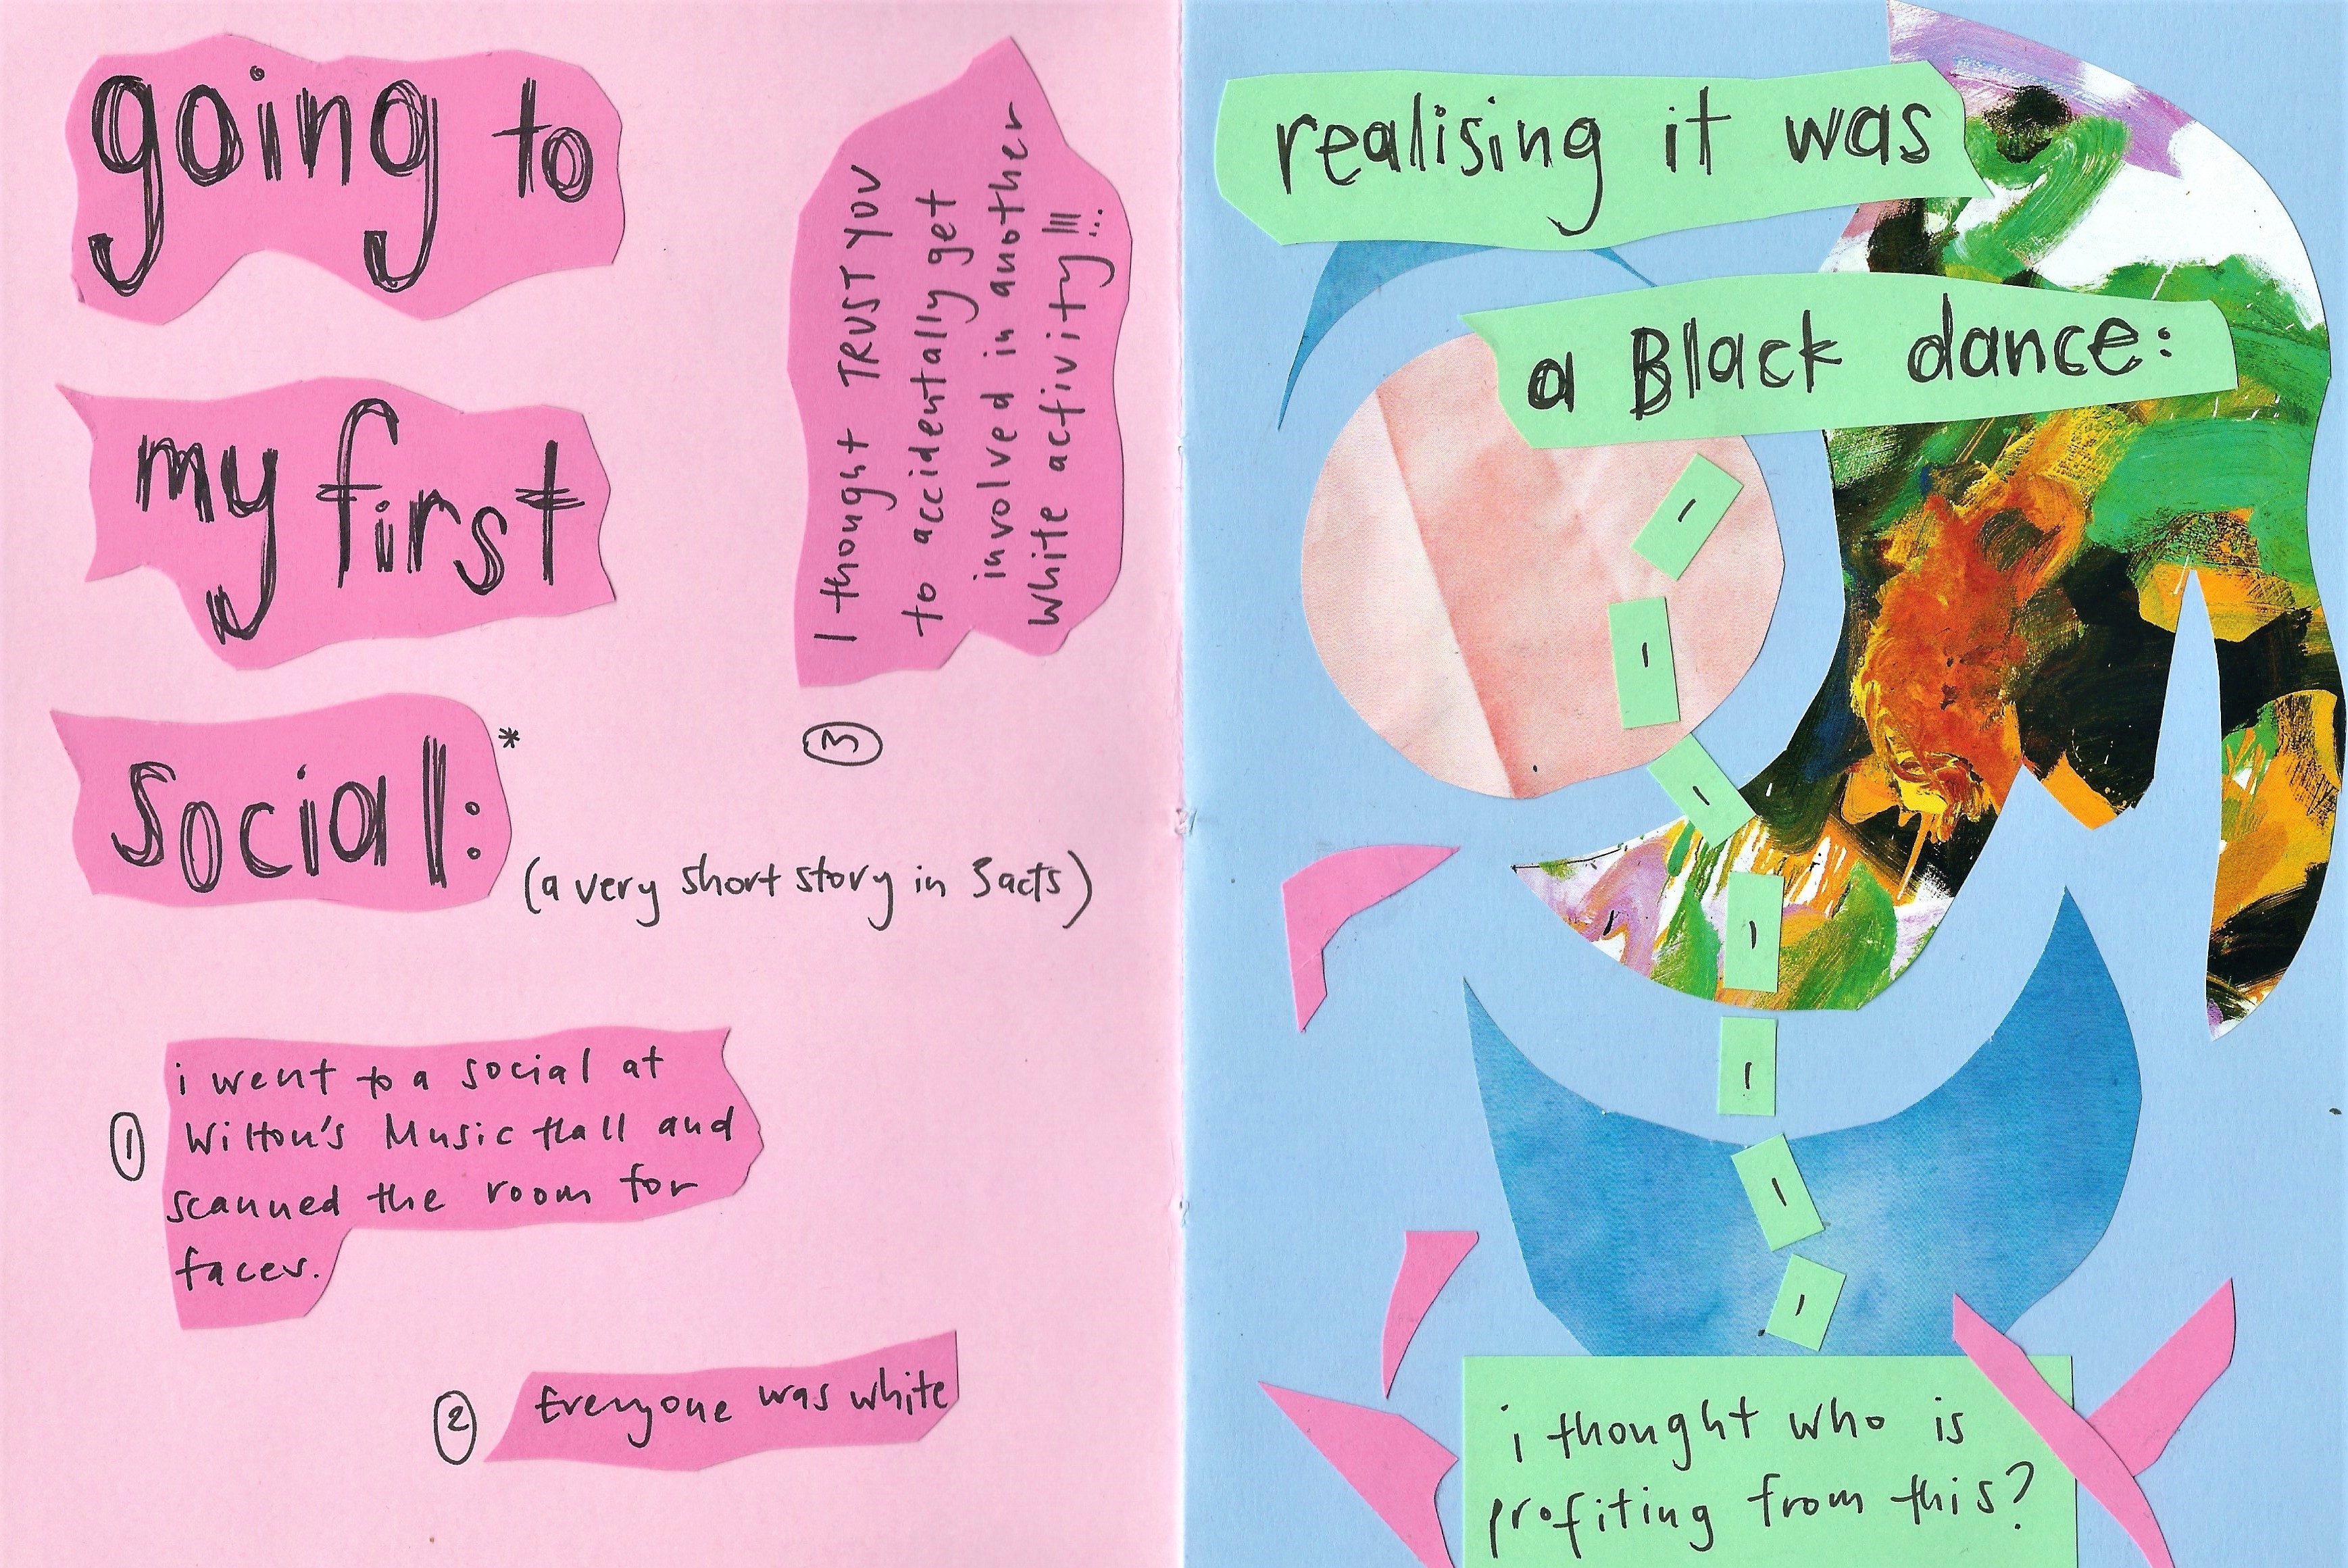 going to
my first
social:*
(a very short story in 3 acts)
1
i went to a social at
Wilton's Music Hall and
scanned the room for
faces.
2
Everyone was white
3
I thought TRUST YOU
to accidentally get
involved in another
white activity!!!...
realising it was
a Black dance:
i thought who is
profiting from this?